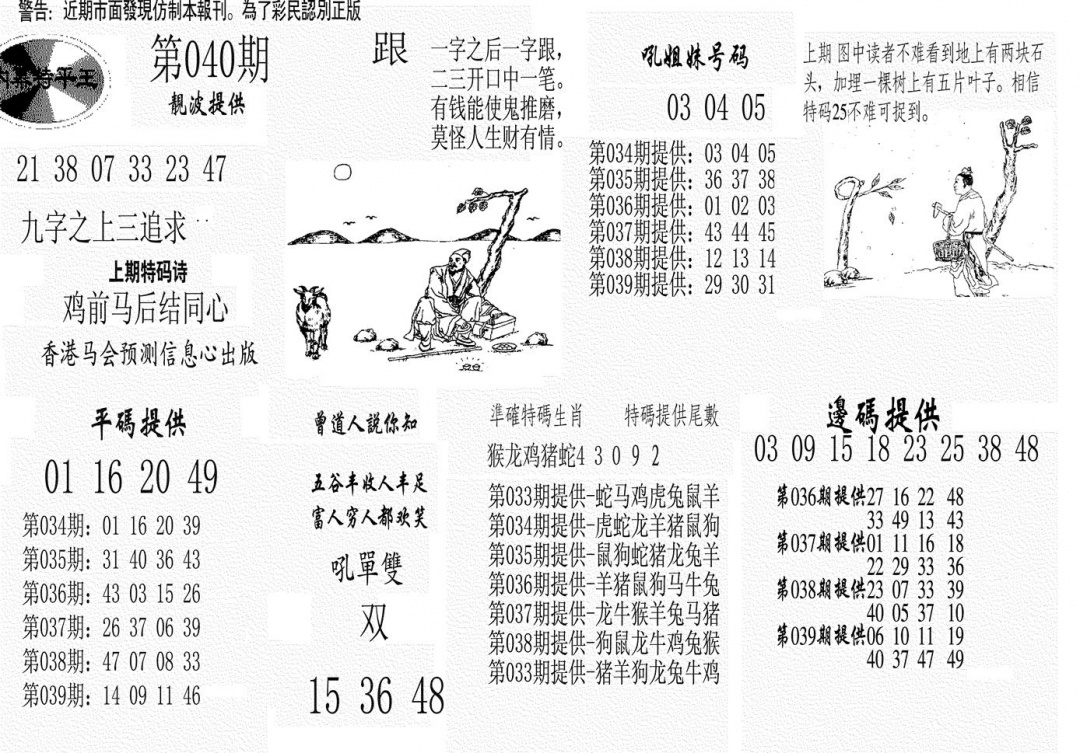 警告: 近期市面發現仿制本報刊。為了彩民認別正版
特平王
第040期
靓波提供
21 38 07 33 23 47
九字之上三追求
上期特码诗
鸡前马后结同心
香港马会预测信息心出版
跟
一字之后一字跟,
二三开口中一笔。
有钱能使鬼推磨,
莫怪人生财有情。
吼姐妹号码
03 04 05
第034期提供: 03 04 05
第035期提供: 36 37 38
第036期提供: 01 02 03
第037期提供: 43 44 45
第038期提供: 12 13 14
第039期提供: 29 30 31
上期 图中读者不难看到地上有两块石
头，加埋一棵树上有五片叶子。相信
特码25不难可捉到。
平碼提供
01 16 20 49
第034期: 01 16 20 39
第035期: 31 40 36 43
第036期: 43 03 15 26
第037期: 26 37 06 39
第038期: 47 07 08 33
第039期: 14 09 11 46
曾道人説你知
五谷丰收人丰足
富人穷人都欢笑
吼單雙
双
15 36 48
準確特碼生肖 特碼提供尾數
猴龙鸡猪蛇4 3 0 9 2
第033期提供-蛇马鸡虎兔鼠羊
第034期提供-虎蛇龙羊猪鼠狗
第035期提供-鼠狗蛇猪龙兔羊
第036期提供-羊猪鼠狗马牛兔
第037期提供-龙牛猴羊兔马猪
第038期提供-狗鼠龙牛鸡兔猴
第033期提供-猪羊狗龙兔牛鸡
邊碼提供
03 09 15 18 23 25 38 48
第036期提供27 16 22 48
33 49 13 43
第037期提供01 11 16 18
22 29 33 36
第038期提供23 07 33 39
40 05 37 10
第039期提供06 10 11 19
40 37 47 49